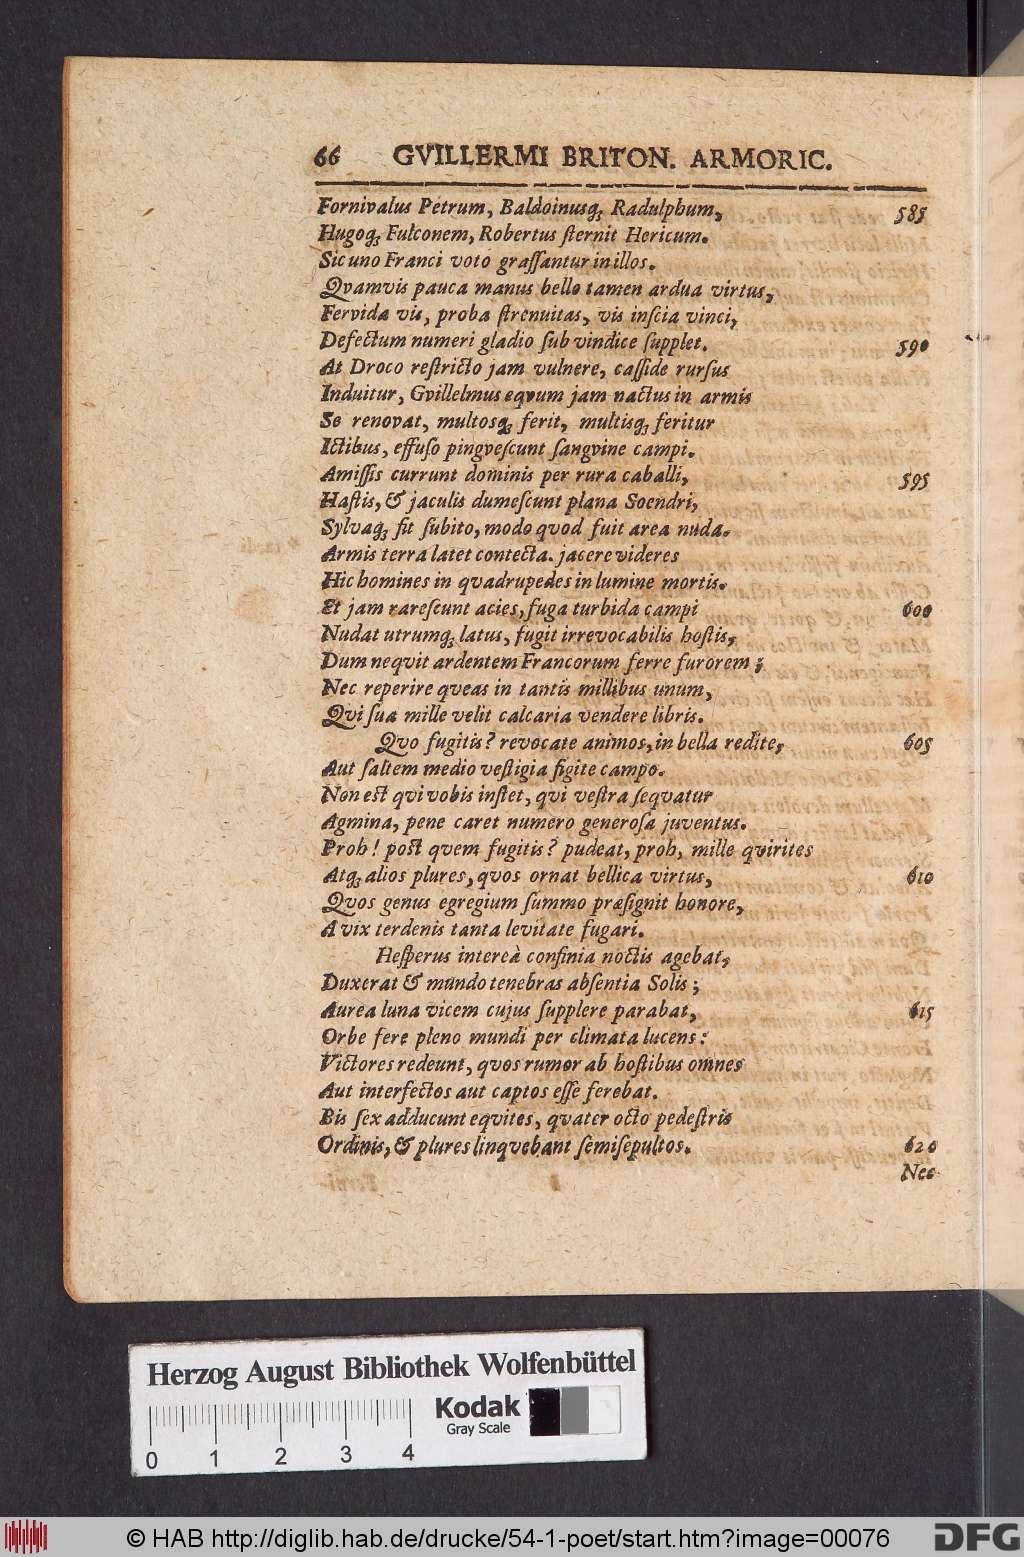 66 GVILLERMI BRITON. ARMORIC.
Fornivalus Petrum, Baldoinusq; Radulphum, 585
Hugoq; Fulconem, Robertus ſternit Hericum.
Sic uno Franci voto graſſantur in illos.
Qvamvis pauca manus bello tamen ardua virtus,
Fervida vis, proba ſtrenuitas, vis inſcia vinci,
Defectum numeri gladio ſub vindice ſupplet. 590
At Droco reſtricto jam vulnere, caſſide rurſus
Induitur, Gvillelmus eqvum jam nactus in armis
Se renovat, multosq; ferit, multisq; feritur
Ictibus, effuſo pingveſcunt ſangvine campi.
Amiſſis currunt dominis per rura caballi, 595
Haſtis, & jaculis dumeſcunt plana Soendri,
Sylvaq; fit ſubito, modo qvod fuit area nuda.
Armis terra latet contecta. jacere videres
Hic homines in qvadrupedes in lumine mortis.
Et jam rareſcunt acies, fuga turbida campi 600
Nudat utrumq; latus, fugit irrevocabilis hoſtis,
Dum neqvit ardentem Francorum ferre furorem;
Nec reperire qveas in tantis millibus unum,
Qvi ſua mille velit calcaria vendere libris.
Qvo fugitis? revocate animos, in bella redite, 605
Aut ſaltem medio veſtigia figite campo.
Non est qvi vobis inſtet, qvi veſtra ſeqvatur
Agmina, pene caret numero generoſa juventus.
Proh! post qvem fugitis? pudeat, proh, mille qvirites
Atq; alios plures, qvos ornat bellica virtus, 610
Qvos genus egregium ſummo præſignit honore,
A vix terdenis tanta levitate fugari.
Heſperus intereà confinia noctis agebat,
Duxerat & mundo tenebras abſentia Solis;
Aurea luna vicem cujus ſupplere parabat, 615
Orbe fere pleno mundi per climata lucens:
Victores redeunt, qvos rumor ab hoſtibus omnes
Aut interfectos aut captos eſſe ferebat.
Bis ſex adducunt eqvites, qvater octo pedeſtris
Ordinis, & plures linqvebant ſemiſepultos. 620
Nec
Herzog August Bibliothek Wolfenbüttel
Kodak
Gray Scale
0 1 2 3 4
© HAB http://diglib.hab.de/drucke/54-1-poet/start.htm?image=00076
DFG